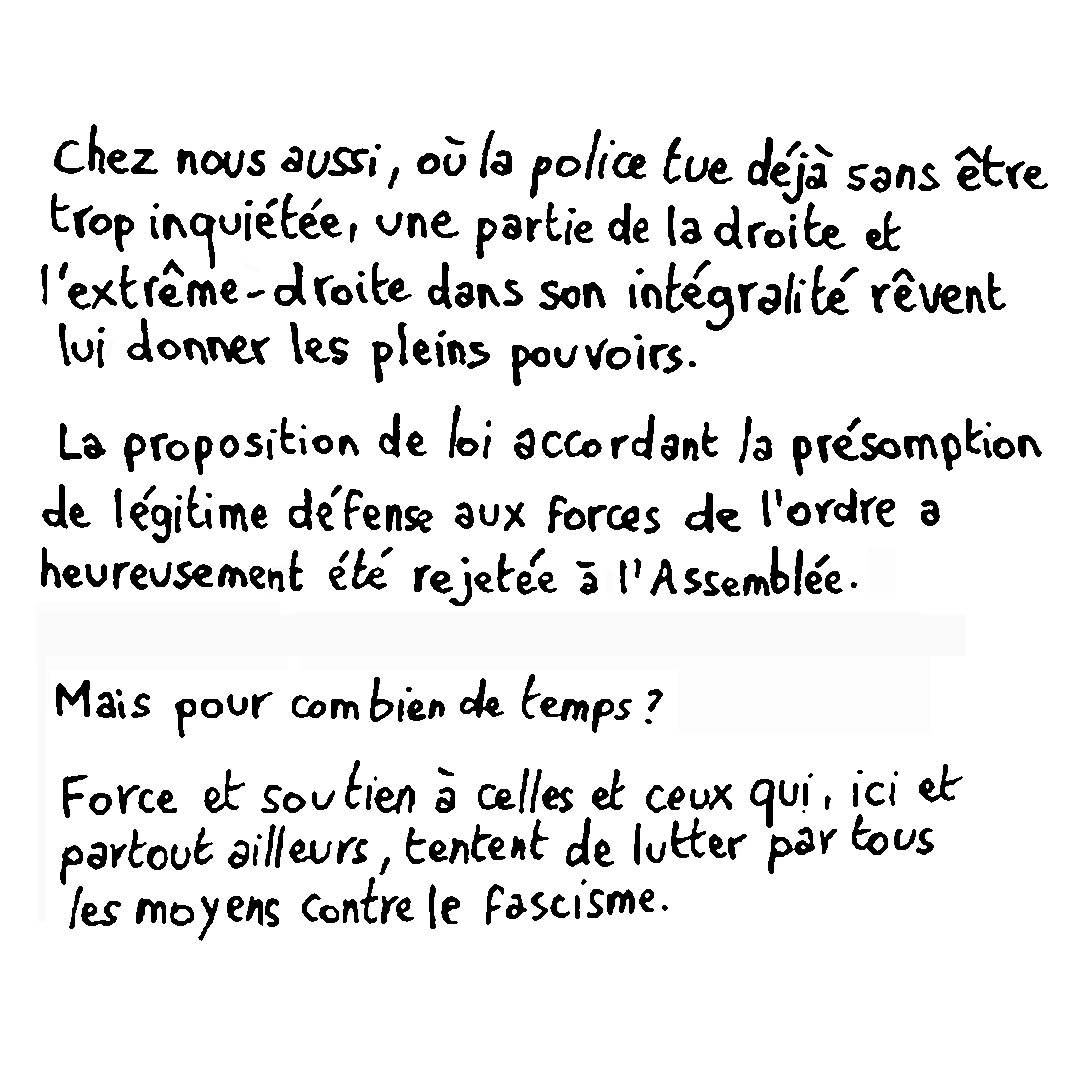 Chez nous aussi, où la police tue déjà sans être
trop inquiétée, une partie de la droite et
l'extrême-droite dans son intégralité rêvent
lui donner les pleins pouvoirs.
La proposition de loi accordant la présomption
de légitime défense aux forces de l'ordre a
heureusement été rejetée à l'Assemblée.
Mais pour combien de temps ?
Force et soutien à celles et ceux qui, ici et
partout ailleurs, tentent de lutter par tous
les moyens contre le fascisme.